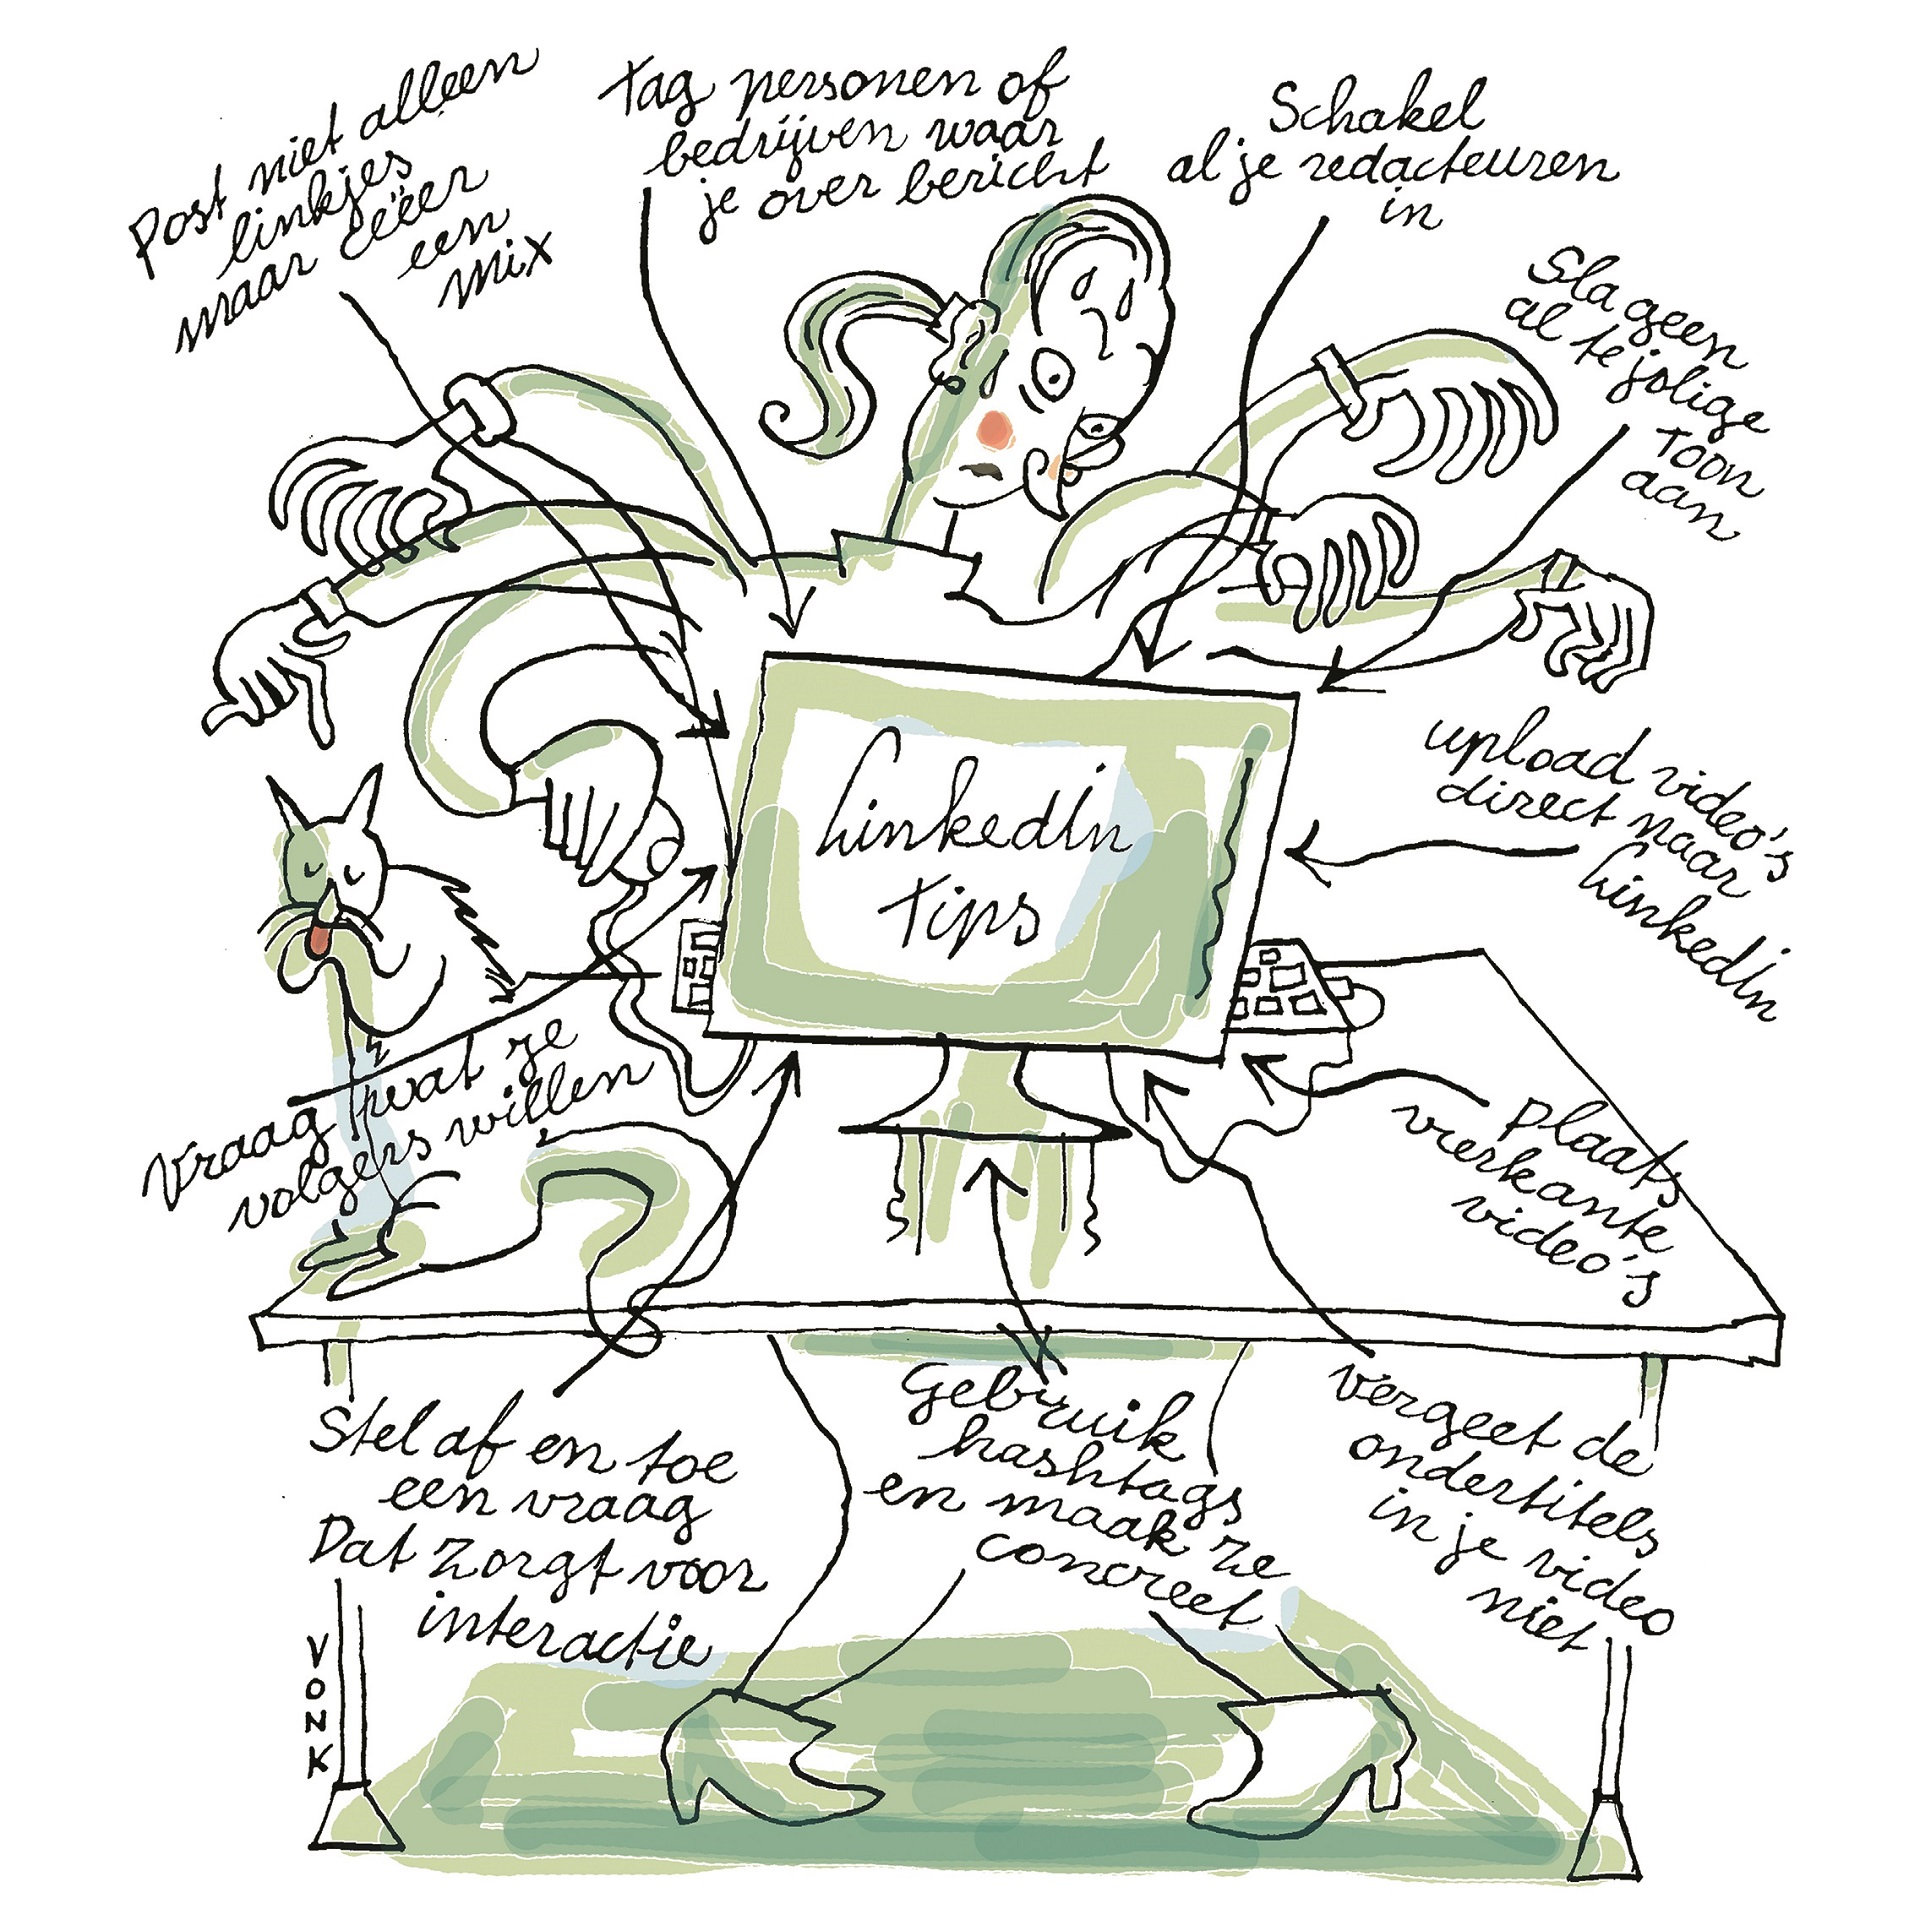 Post niet alleen
linkjes
maar eéér
een
mix
Tag personen of
bedrijven waar
je over bericht
Schakel
al je redacteuren
in
Sla geen
al te jolige
toon
aan
upload video's
direct naar
LinkedIn
LinkedIn
tips
Plaats
vierkante
video's
Vraag wat ze
volgers willen
Stel af en toe
een vraag
Dat zorgt voor
interactie
Gebruik
hashtags
en maak ze
concreet
Vergeet de
ondertitels
in je video
niet
VONK